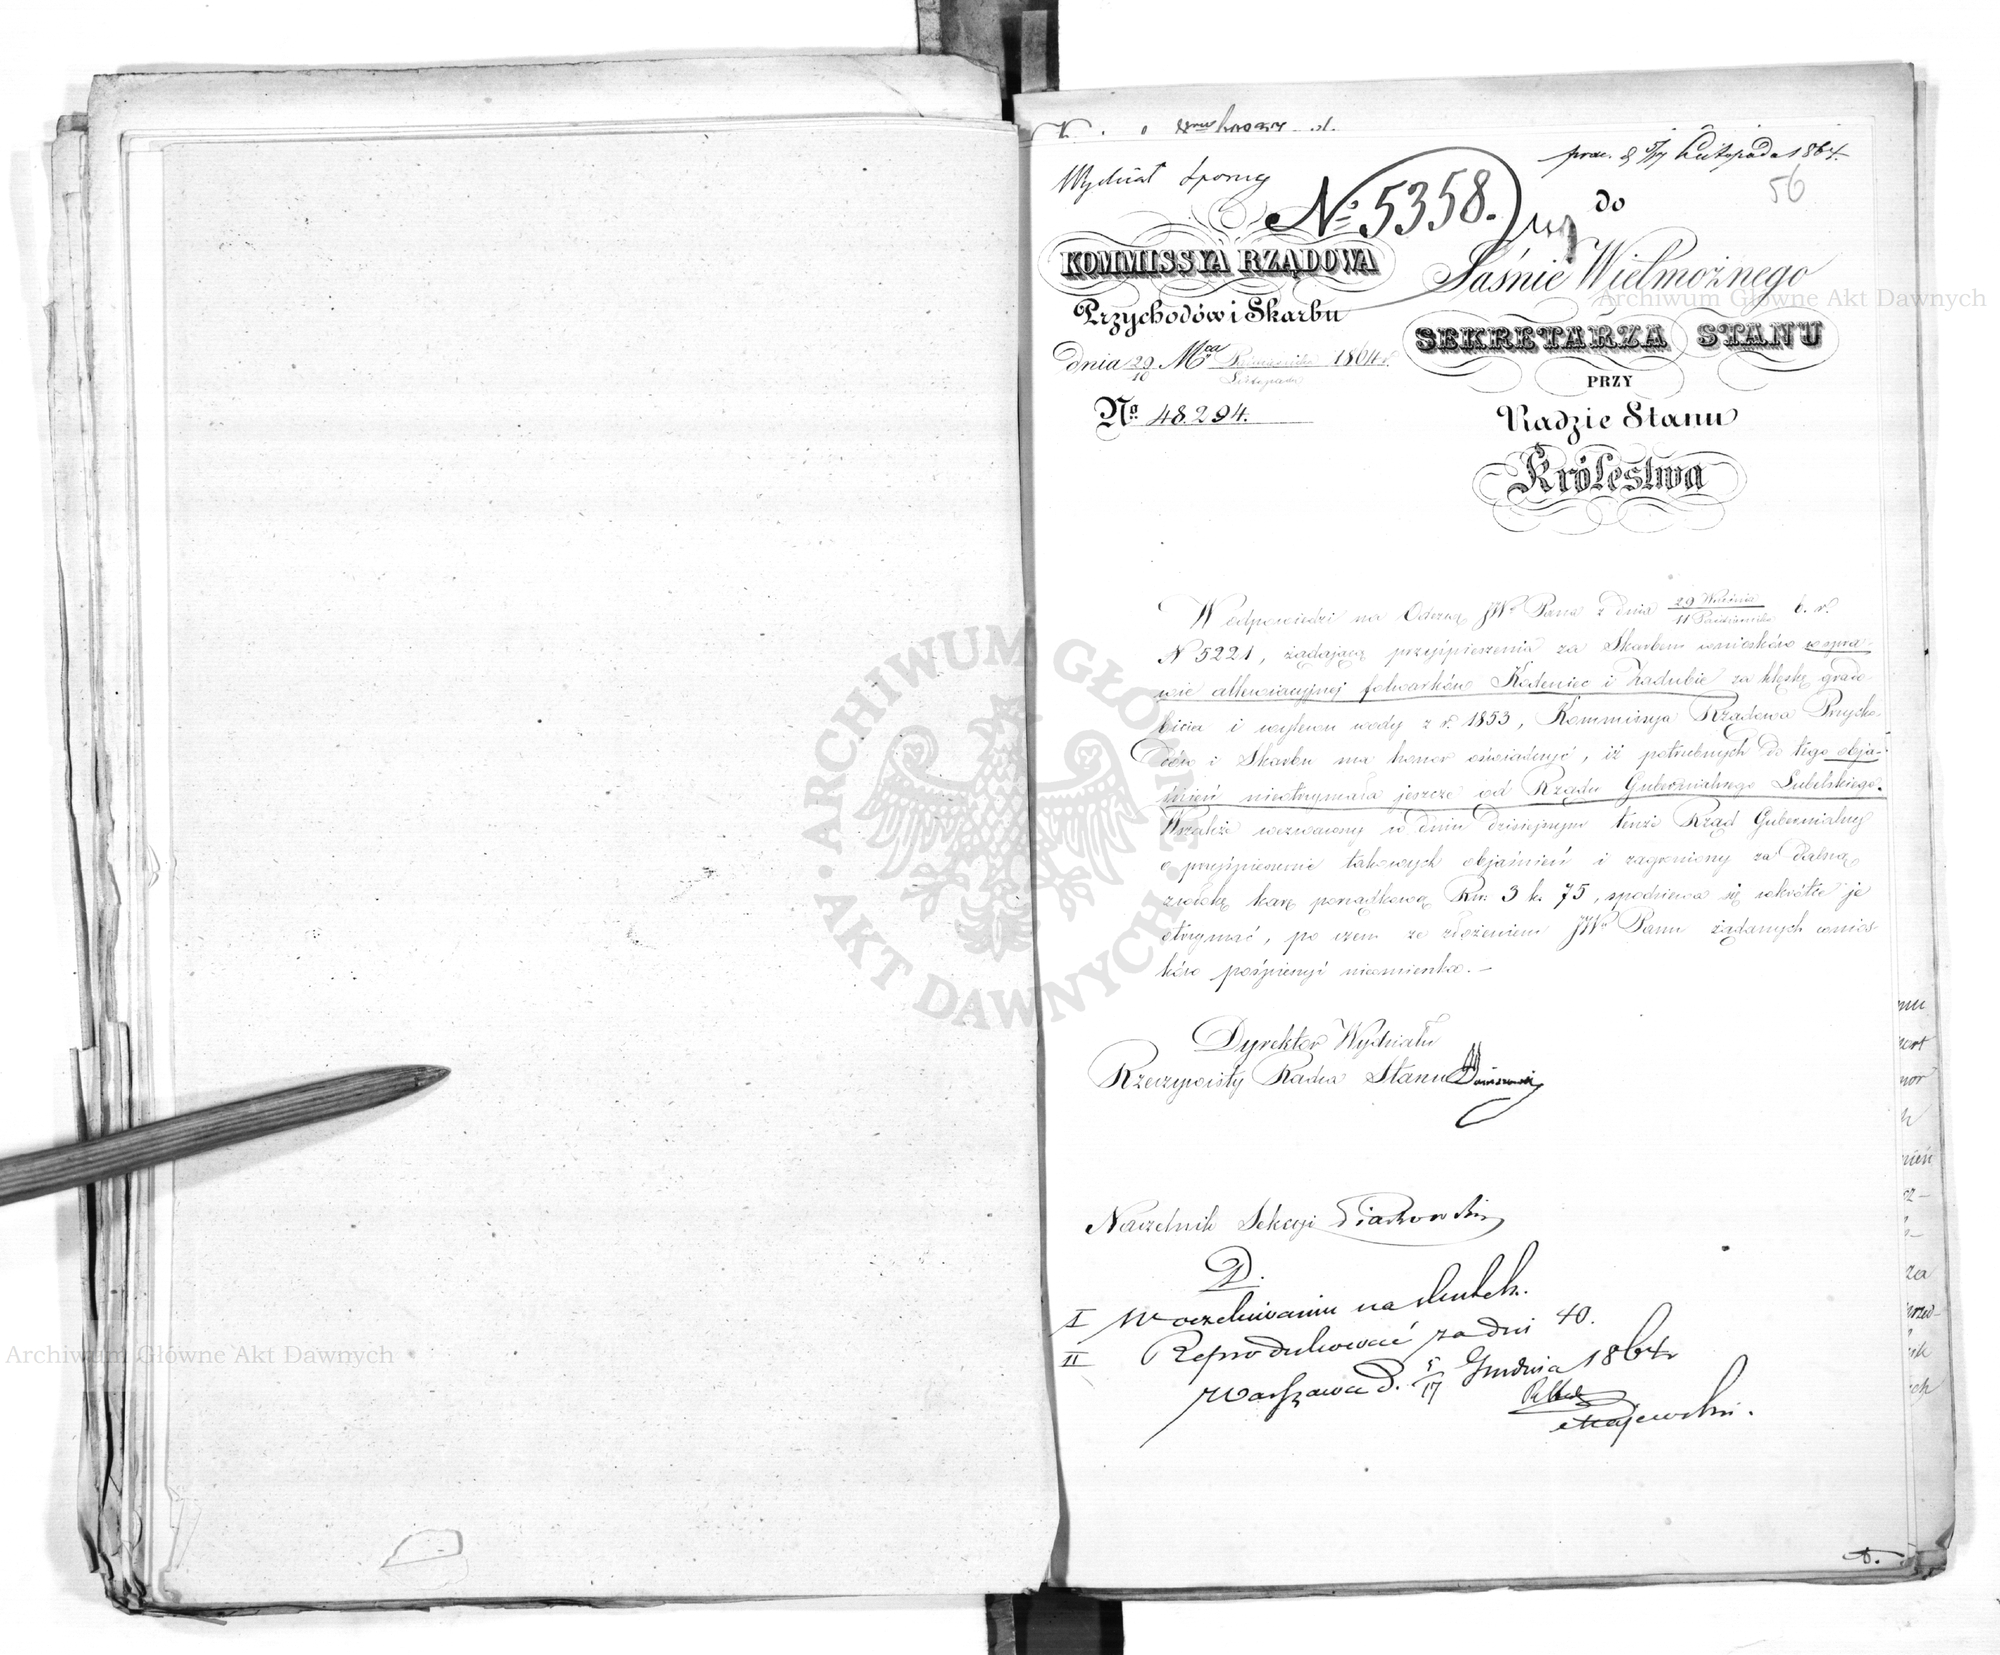 prez. d 5/17 Listopada 1864.
56
Wydział Sporny
№ 5358.
KOMMISSYA RZĄDOWA
Przychodów i Skarbu
dnia 29/10 Mca Października/Listopada 1864 r.
№ 48.294.
do
Jaśnie Wielmożnego
SEKRETARZA STANU
PRZY
Radzie Stanu
Królestwa
W odpowiedzi na Odezwę JWo Pana z dnia 29 Września/11 Października b. r.
N 5221, żądającą przyśpieszenia za Skarbem wniosków w spra-
wie allewiacyjnej folwarków Kodeniec i Zadubie za klęskę grado-
bicia i wylewu wody z r. 1853, Kommissya Rządowa Przycho-
dów i Skarbu ma honor oświadczyć, iż potrzebnych do tego obja-
śnień nieotrzymała jeszcze od Rządu Gubernialnego Lubelskiego.
Wszakże wezwawszy w dniu dzisiejszym tenże Rząd Gubernialny
o przyśpieszenie takowych objaśnień i zagroziwszy za dalszą
zwłokę karą porządkową Rsr. 3 k. 75, spodziewa się wkrótce je
otrzymać, po czem ze złożeniem JWu Panu żądanych wnios-
ków pośpieszyć nieomieszka. –
Dyrektor Wydziału
Rzeczywisty Radca Stanu
Naczelnik Sekcyi Piastowski
D.
I W oczekiwaniu na skutek.
II Reprodukować za dni 40.
Warszawa d. 5/17 Grudnia 1864 r
Majewski.
Archiwum Główne Akt Dawnych
ARCHIWUM GŁÓWNE • AKT DAWNYCH •
Archiwum Główne Akt Dawnych